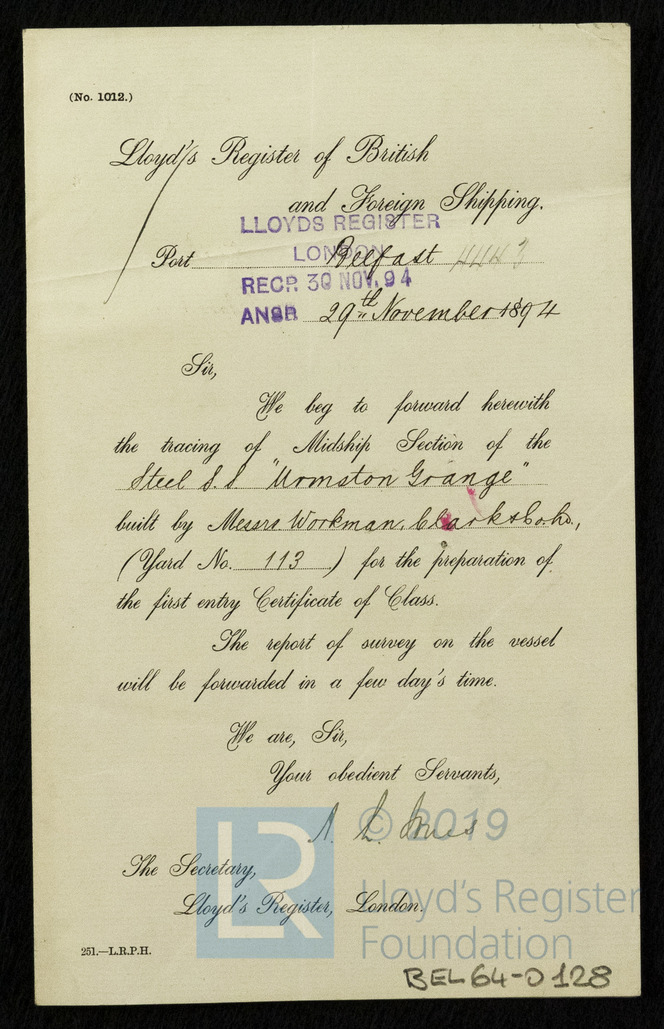 (No. 1012.)
Lloyd's Register of British
and Foreign Shipping.
LLOYDS REGISTER
LONDON
Port Belfast
RECP. 30 NOV. 94
ANSD. 29th November 1894
Sir,
We beg to forward herewith
the tracing of Midship Section of the
Steel S.S "Urmston Grange"
built by Messrs Workman, Clark & Co. Ld.,
(Yard No. 113) for the preparation of
the first entry Certificate of Class.
The report of survey on the vessel
will be forwarded in a few day's time.
We are, Sir,
Your obedient Servants,
© 2019
LR
The Secretary,
Lloyd's Register, London.
Lloyd's Register
Foundation
251.—L.R.P.H.
BEL64-0128